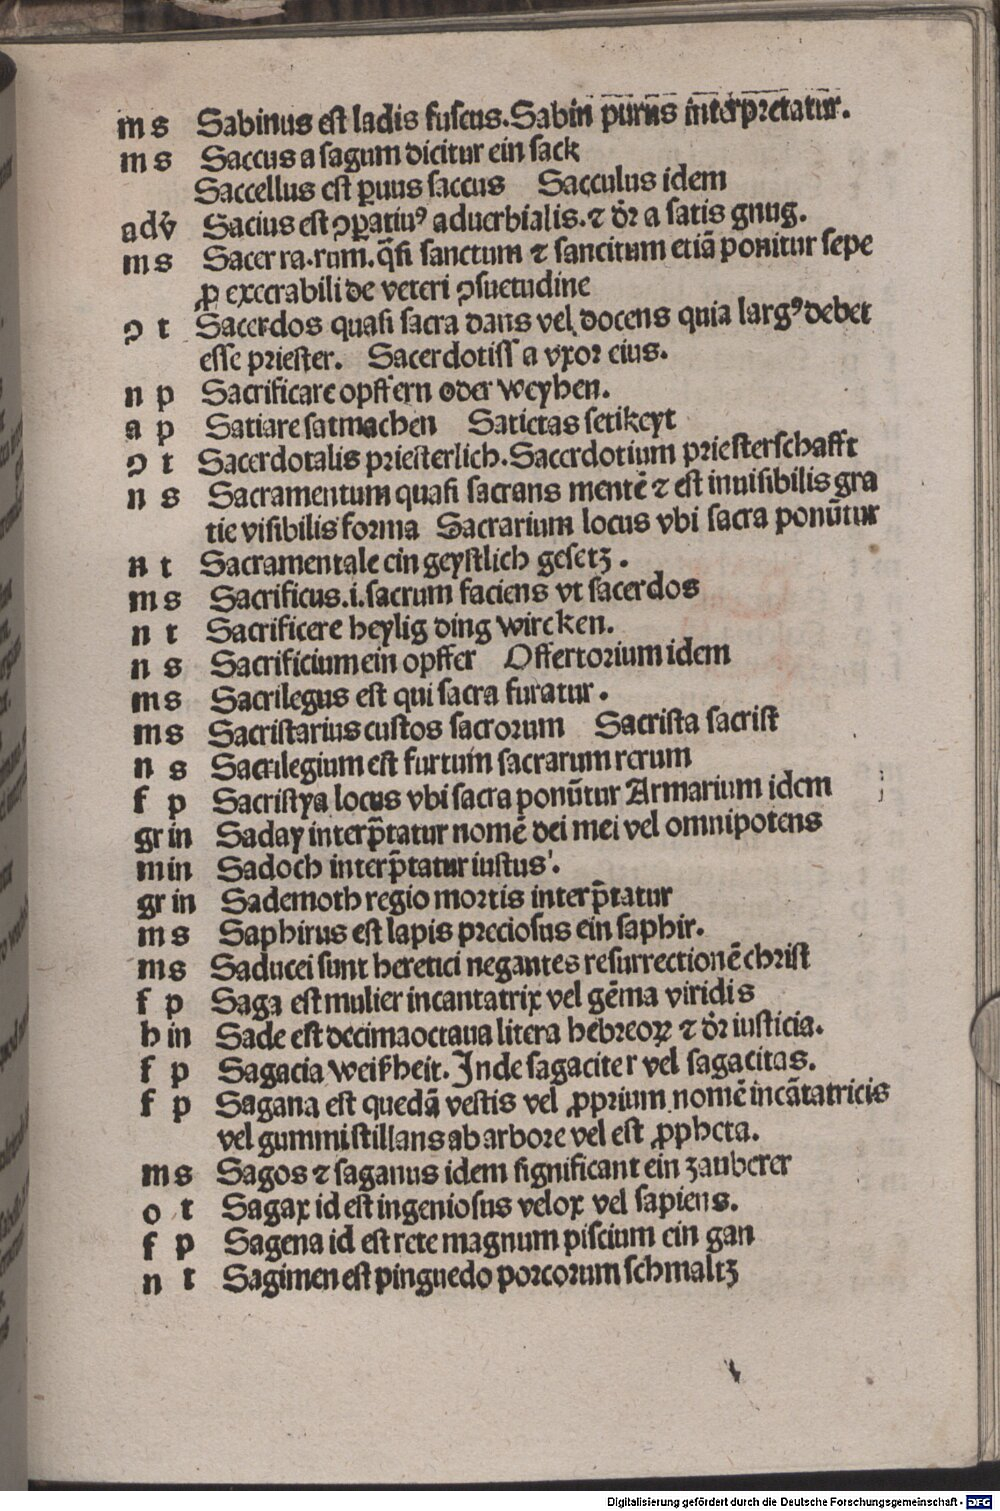 m s Sabinus est ladis fuscus. Sabin purus interpretatur.
m s Saccus a sagum dicitur ein sack
Saccellus est ꝑuus saccus Sacculus idem
adv̄ Sacius est ↄꝑatiuꝰ aduerbialis. ⁊ dr̄ a satis gnug.
m s Sacer ra. rum. q̄si sanctum ⁊ sancitum etiā ponitur sepe
ꝓ execrabili de veteri ↄsuetudine
ↄ t Sacerdos quasi sacra dans vel docens quia largꝰ debet
esse priester. Sacerdotiss a vxor eius.
n p Sacrificare opffern oder weyhen.
a p Satiare satmachen Satietas setikeyt
ↄ t Sacerdotalis priesterlich. Sacerdotium priesterschafft
n s Sacramentum quasi sacrans mentē ⁊ est inuisibilis gra
tie visibilis forma Sacrarium locus vbi sacra ponūtur
n t Sacramentale ein geystlich gesetz.
m s Sacrificus. i. sacrum faciens vt sacerdos
n t Sacrificere heylig ding wircken.
n s Sacrificium ein opffer Offertorium idem
m s Sacrilegus est qui sacra furatur.
m s Sacristarius custos sacrorum Sacrista sacrist
n s Sacrilegium est furtum sacrarum rerum
f p Sacristya locus vbi sacra ponūtur Armarium idem
gr in Saday interp̄tatur nomē dei mei vel omnipotens
m in Sadoch interp̄tatur iustus.
gr in Sademoth regio mortis interp̄tatur
m s Saphirus est lapis preciosus ein saphir.
m s Saducei sunt heretici negantes resurrectionē christ
f p Saga est mulier incantatrix vel gēma viridis
h in Sade est decimaoctaua litera hebreoꝝ ⁊ dr̄ iusticia.
f p Sagacia weißheit. Inde sagaciter vel sagacitas.
f p Sagana est quedā vestis vel ꝓprium nomē incātatricis
vel gummi stillans ab arbore vel est ꝓpheta.
m s Sagos ⁊ saganus idem significant ein zauberer
o t Sagax id est ingeniosus velox vel sapiens.
f p Sagena id est rete magnum piscium ein gan
n t Sagimen est pinguedo porcorum schmaltz
Digitalisierung gefördert durch die Deutsche Forschungsgemeinschaft - DFG